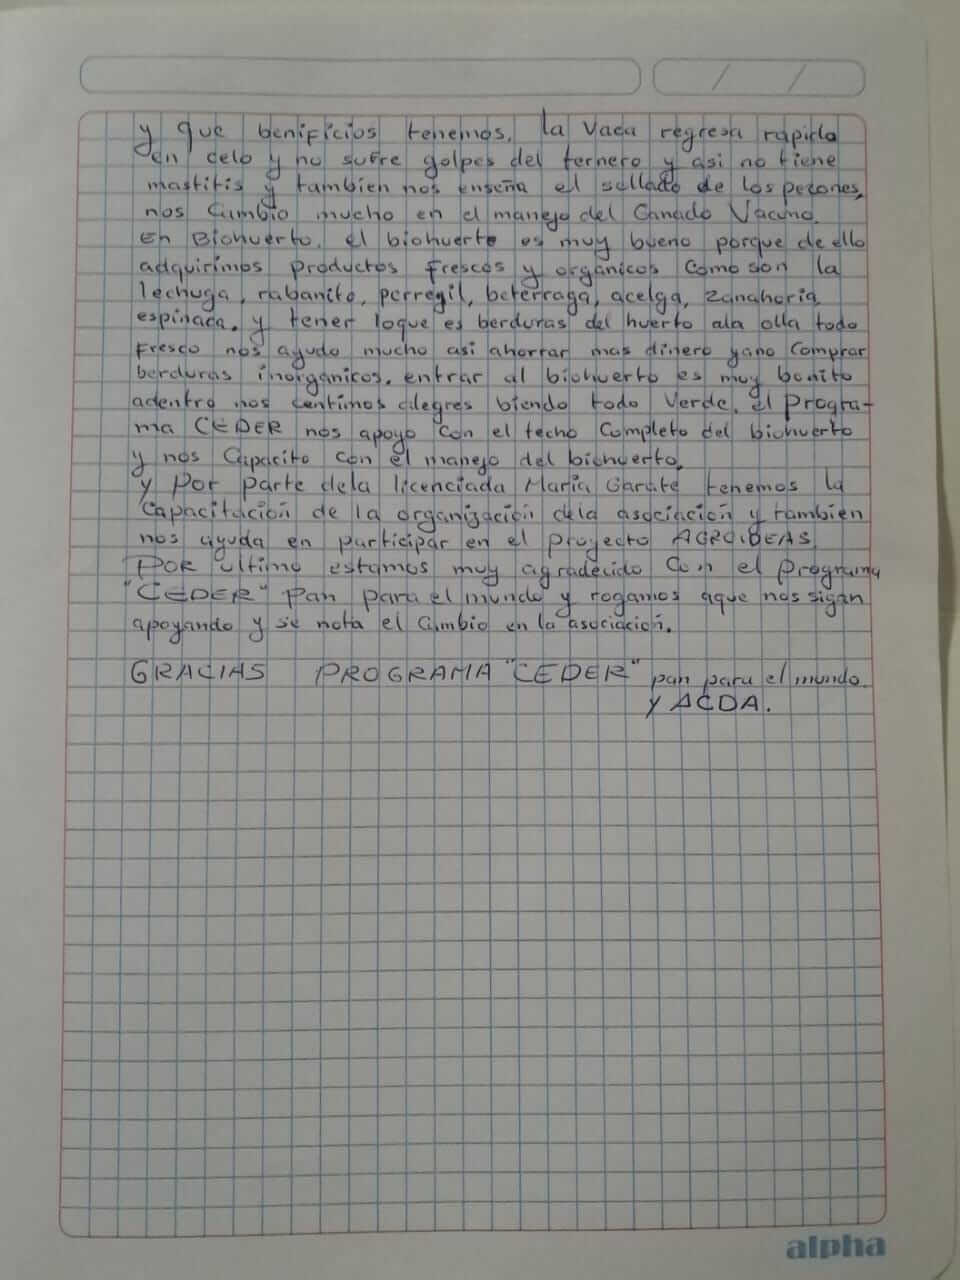 y que benificios tenemos. la Vaca regresa rapido
en celo y no sufre golpes del ternero y asi no tiene
mastitis y tambien nos enseña el sellado de los pezones,
nos Cambio mucho en el manejo del Ganado Vacuno.
En Biohuerto. el biohuerto es muy bueno porque de ello
adquirimos productos frescos y organicos como son la
lechuga, rabanito, perregil, beterraga, acelga, zanahoria,
espinaca. y tener loque es berduras del huerto ala olla todo
fresco nos ayudo mucho asi ahorrar mas dinero yano comprar
berduras inorganicos. entrar al biohuerto es muy bonito
adentro nos centimos alegres biendo todo Verde. el Progra-
ma CEDER nos apoyo con el techo Completo del biohuerto
y nos Capacito con el manejo del biohuerto.
y Por parte dela licenciada Maria Garate tenemos la
Capacitación de la organización dela asociación y tambien
nos ayuda en participar en el proyecto AGROIDEAS
Por ultimo estamos muy agradecido Con el programa
"CEDER" pan para el mundo y rogamos aque nos sigan
apoyando y se nota el Cambio en la asociación.
GRACIAS PROGRAMA "CEDER" pan para el mundo.
Y ACDA.
alpha